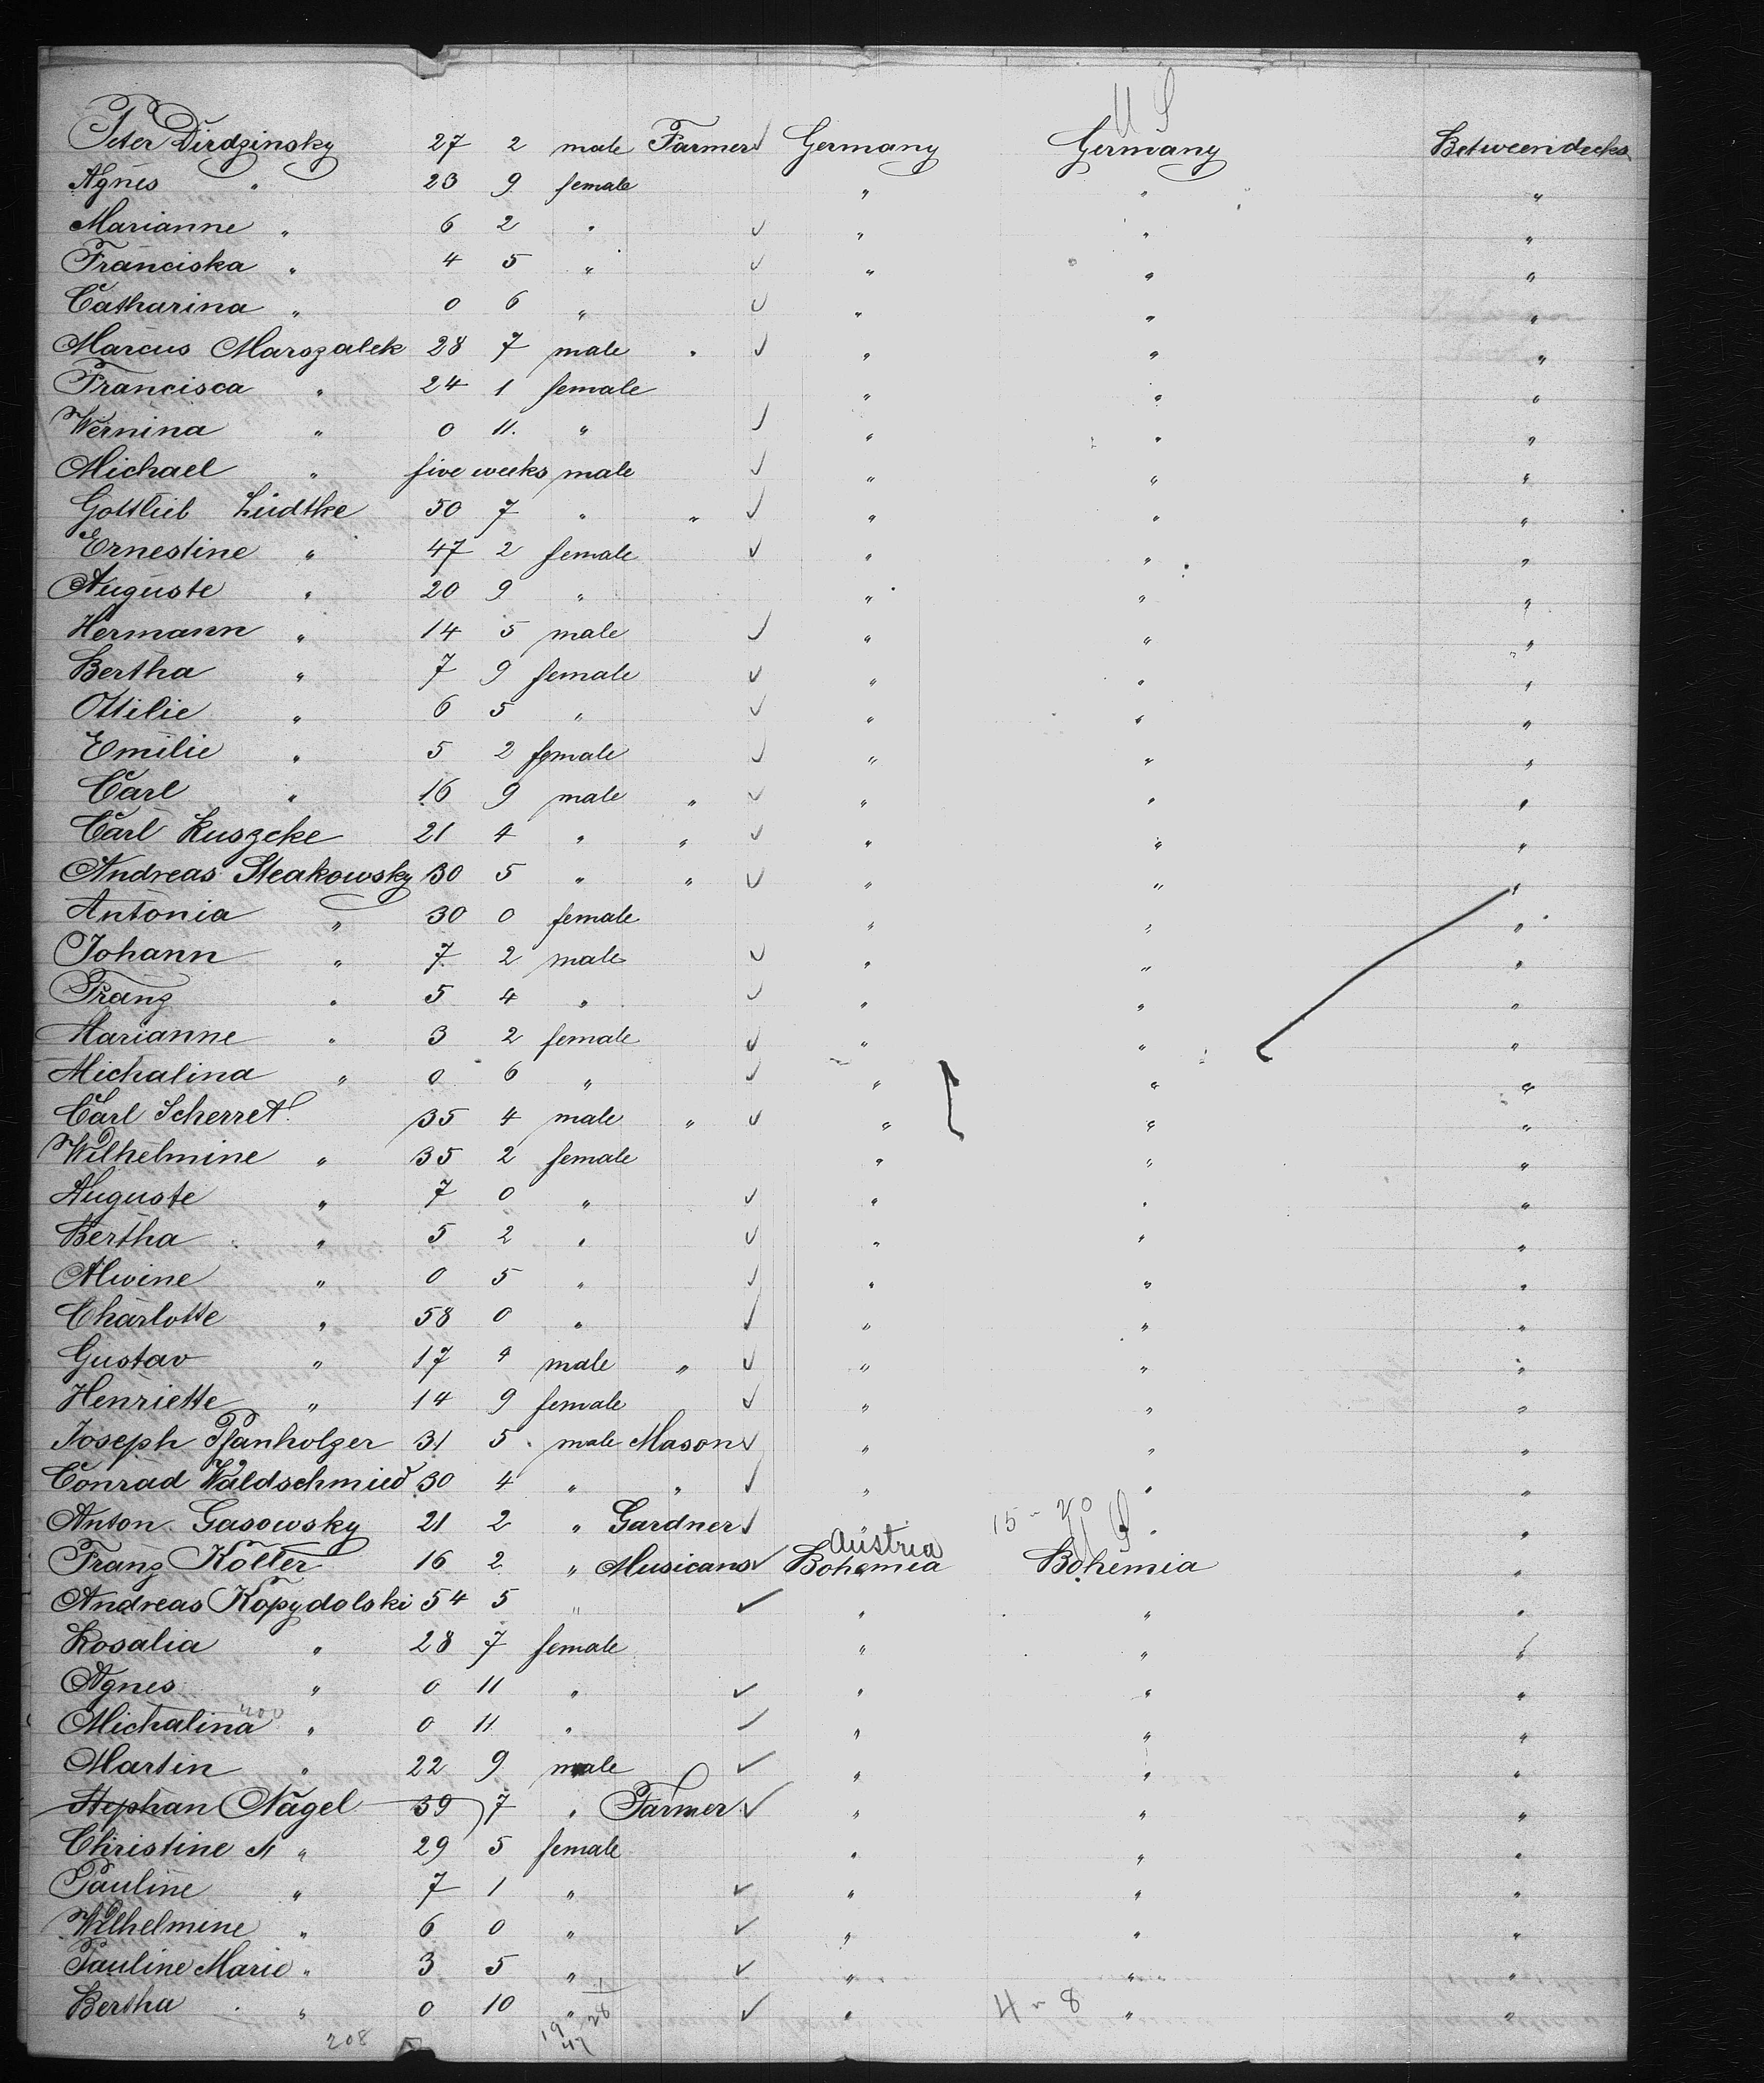 U S
Peter Dirdzinsky 27 2 male Farmer Germany Germany Between decks
Agnes " 23 9 female " " "
Marianne " 6 2 " " " "
Franciska " 4 5 " " " "
Catharina " 0 6 " " " "
Marcus Marszalek 28 7 male " " " "
Francisca " 24 1 female " " "
Wernina " 0 11. " " " "
Michael " five weeks male " " "
Gottlieb Lüdtke 50 7 " " " " "
Ernestine " 47 2 female " " "
Auguste " 20 9 " " " "
Hermann " 14 5 male " " "
Bertha " 7 9 female " " "
Ottilie " 6 5 " " " "
Emilie " 5 2 female " " "
Carl " 16 9 male " " " "
Carl Kuszcke 21 4 " " " " "
Andreas Steakowsky 30 5 " " " " "
Antonia " 30 0 female " " "
Johann " 7 2 male " " "
Franz " 5 4 " " " "
Marianne " 3 2 female " " "
Michalina " 0 6 " " " "
Carl Scherret 35 4 male " " " "
Wilhelmine " 35 2 female " " "
Auguste " 7 0 " " " "
Bertha " 5 2 " " " "
Alwine " 0 5 " " " "
Charlotte " 58 0 " " " "
Gustav " 17 4 male " " " "
Henriette " 14 9 female " " "
Joseph Pfanholzer 31 5 male Mason " " "
Conrad Waldschmied 30 4 " " " " "
Anton Gasowsky 21 2 " Gardner " 15 - 20 " "
Austria
Franz Kolter 16 2 " Musicans Bohemia Bohemia "
Andreas Kopydolski 54 5 " " " "
Rosalia " 28 7 female " " "
Agnes " 0 11 " " " "
Michalina " 0 11 " " " "
Martin " 22 9 male " " "
Stephan Nagel 39 7 " Farmer " " "
Christine " 29 5 female " " "
Pauline " 7 1 " " " "
Wilhelmine " 6 0 " " " "
Pauline Marie " 3 5 " " " "
Bertha " 0 10 " " 4 - 8 " "
208 19 28
47